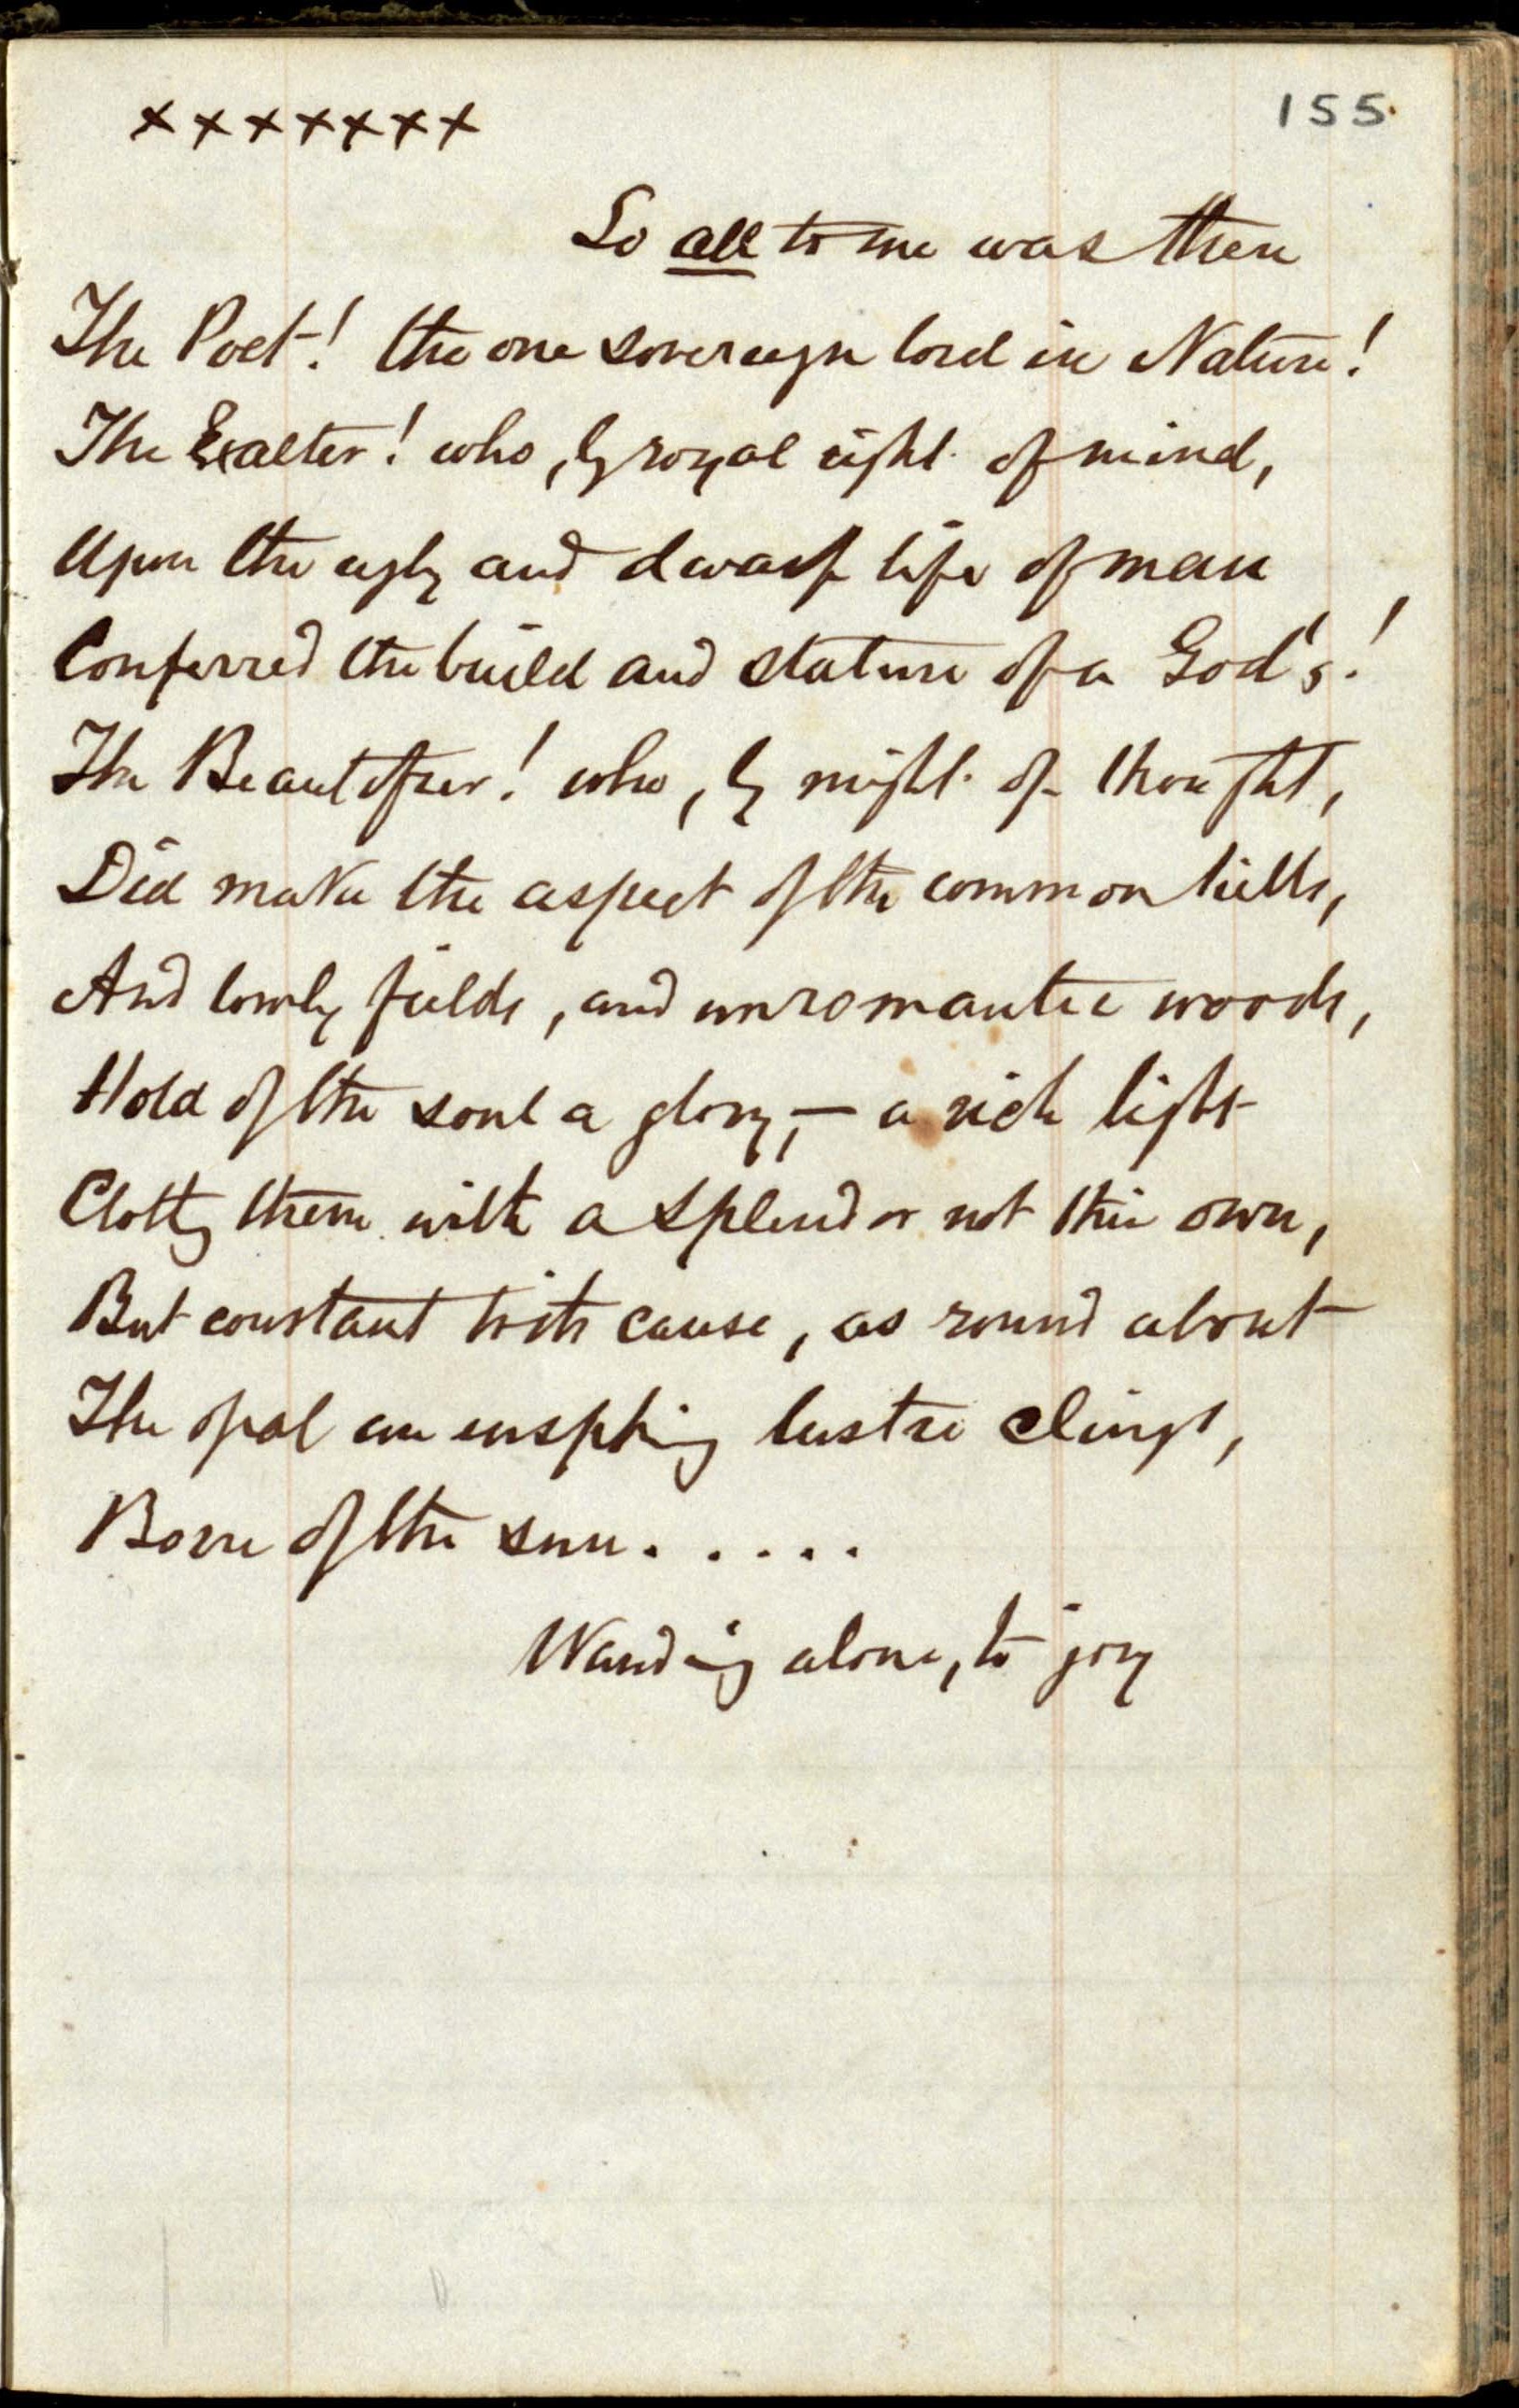 x x x x x x x
155.
So all to me was then
The Poet! the one sovereign lord in Nature!
The Exalter! who, by royal right of mind,
Upon the ugly and dwarf life of man
Conferred the build and stature of a God's!
The Beautifier! who, by might of thought,
Did make the aspect of the common hills,
And lowly fields, and unromantic woods,
Hold of the soul a glory, — a rich light
Clothg them with a splendor not their own,
But constant to its cause, as round about
The opal an ensphing lustre clings,
Born of the sun. . . . .
Wanding alone, to joy